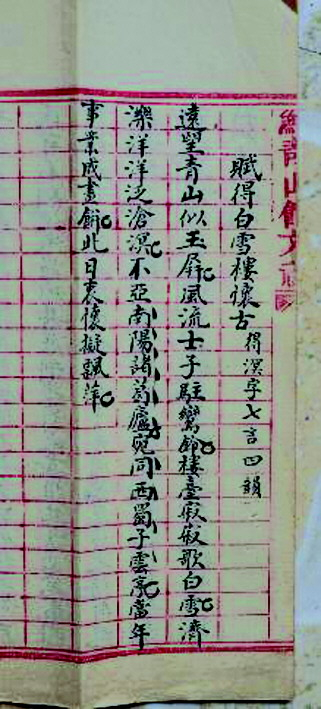 山館文
賦得白雪樓懷古 得溟字七言四韻
遠望青山似玉屏風流士子駐鸞鈴樓臺寂寂歌白雪濟
濼洋洋泛滄溟不亞南陽諸葛廬宛同西蜀子雲亭當年
事業成畫餅此日衷懷擬飄萍